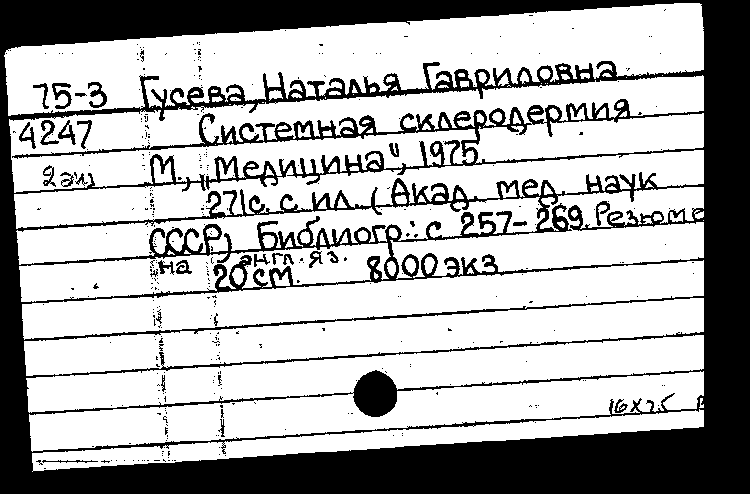 75-3 Гусева, Наталья Гавриловна
4247 Системная склеродермия.
2 экз М., „Медицина", 1975.
271с. с ил. (Акад. мед. наук
СССР) Библиогр.: с 257-269. Резюме
на англ. яз.
20 см. 8000 экз
16х7.5